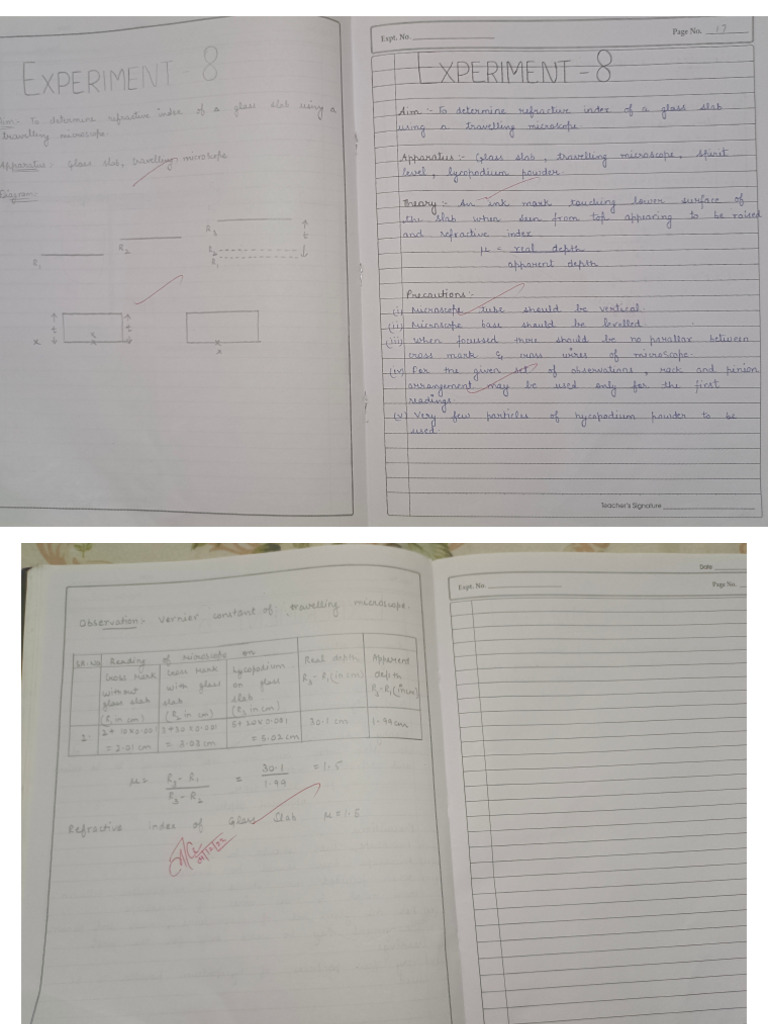 EXPERIMENT - 8
Aim:- To determine refractive index of a glass slab using a
travelling microscope.
Apparatus:- Glass slab, travelling microscope
Diagram:
R3
R2
R1
t
R2
R1
t
t
x
x
x
Expt. No.
Page No. 17
EXPERIMENT - 8
Aim :- To determine refractive index of a glass slab
using a travelling microscope
Apparatus :- Glass slab, travelling microscope, spirit
level, lycopodium powder.
Theory :- An ink mark touching lower surface of
the slab when seen from top appearing to be raised
and refractive index
μ = real depth
apparent depth
Precautions :-
(i) Microscope tube should be vertical.
(ii) Microscope base should be levelled.
(iii) When focussed there should be no parallax between
cross mark & cross wires of microscope.
(iv) For the given set of observations, rack and pinion
arrangement may be used only for the first
readings.
(v) Very few particles of lycopodium powder to be
used.
Teacher's Signature
Date
Expt. No.
Page No.
Observation:- Vernier constant of travelling microscope.
SR.No Reading of microscope on
Cross mark without glass slab (R1 in cm)
Cross mark with glass slab (R2 in cm)
Lycopodium on glass slab (R3 in cm)
Real depth R3-R1 (in cm)
Apparent depth R3-R2 (in cm)
= 2.01 cm
= 3.03 cm
5+20×0.001 = 5.02 cm
30.1 cm
1.99 cm
μ = R3 - R1 = 30.1 = 1.5
R3 - R2 1.99
Refractive index of Glass Slab μ = 1.5